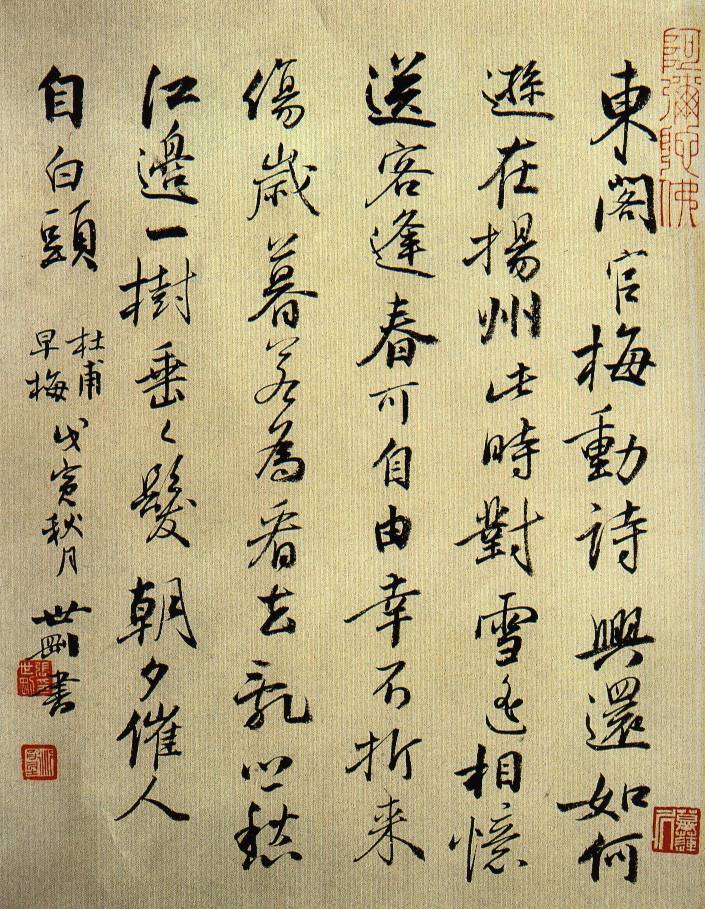 東閣官梅動詩興還如何
遜在揚州此時對雪遙相憶
送客逢春可自由幸不折来
傷歲暮若為看去亂鄉愁
江邊一樹垂々髮朝夕催人
自白頭
杜甫
早梅
戊寅秋月
世剛书
阿彌陀佛